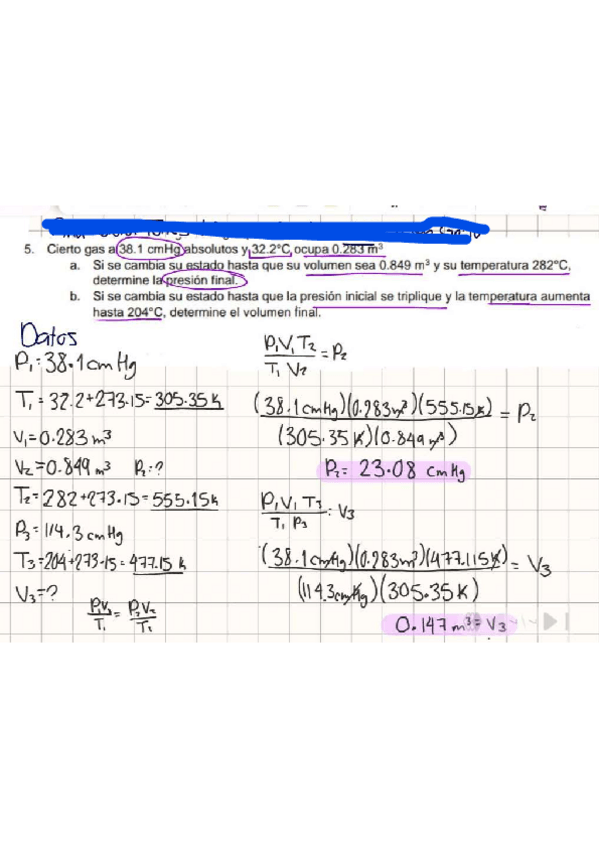 5. Cierto gas a 38.1 cmHg absolutos y 32.2°C, ocupa 0.283 m³
a. Si se cambia su estado hasta que su volumen sea 0.849 m³ y su temperatura 282°C,
determine la presión final.
b. Si se cambia su estado hasta que la presión inicial se triplique y la temperatura aumenta
hasta 204°C, determine el volumen final.
Datos
P₁: 38.1 cm Hg
T₁ = 32.2+273.15=305.35 K
V₁=0.283 m³
V₂=0.849 m³ P₂:?
T₂=282+273.15=555.15k
P₃=114.3 cm Hg
T₃=204+273.15=477.15 k
V₃=?
P₁V₁/T₁ = P₂V₂/T₂
P₁V₁T₂/T₁V₂ = P₂
(38.1cmHg)(0.283m³)(555.15k)/(305.35K)(0.849m³) = P₂
P₂= 23.08 cmHg
P₁V₁T₃/T₁P₃ : V₃
(38.1cmHg)(0.283m³)(477.115K)/(114.3cmHg)(305.35K) = V₃
0.147m³=V₃